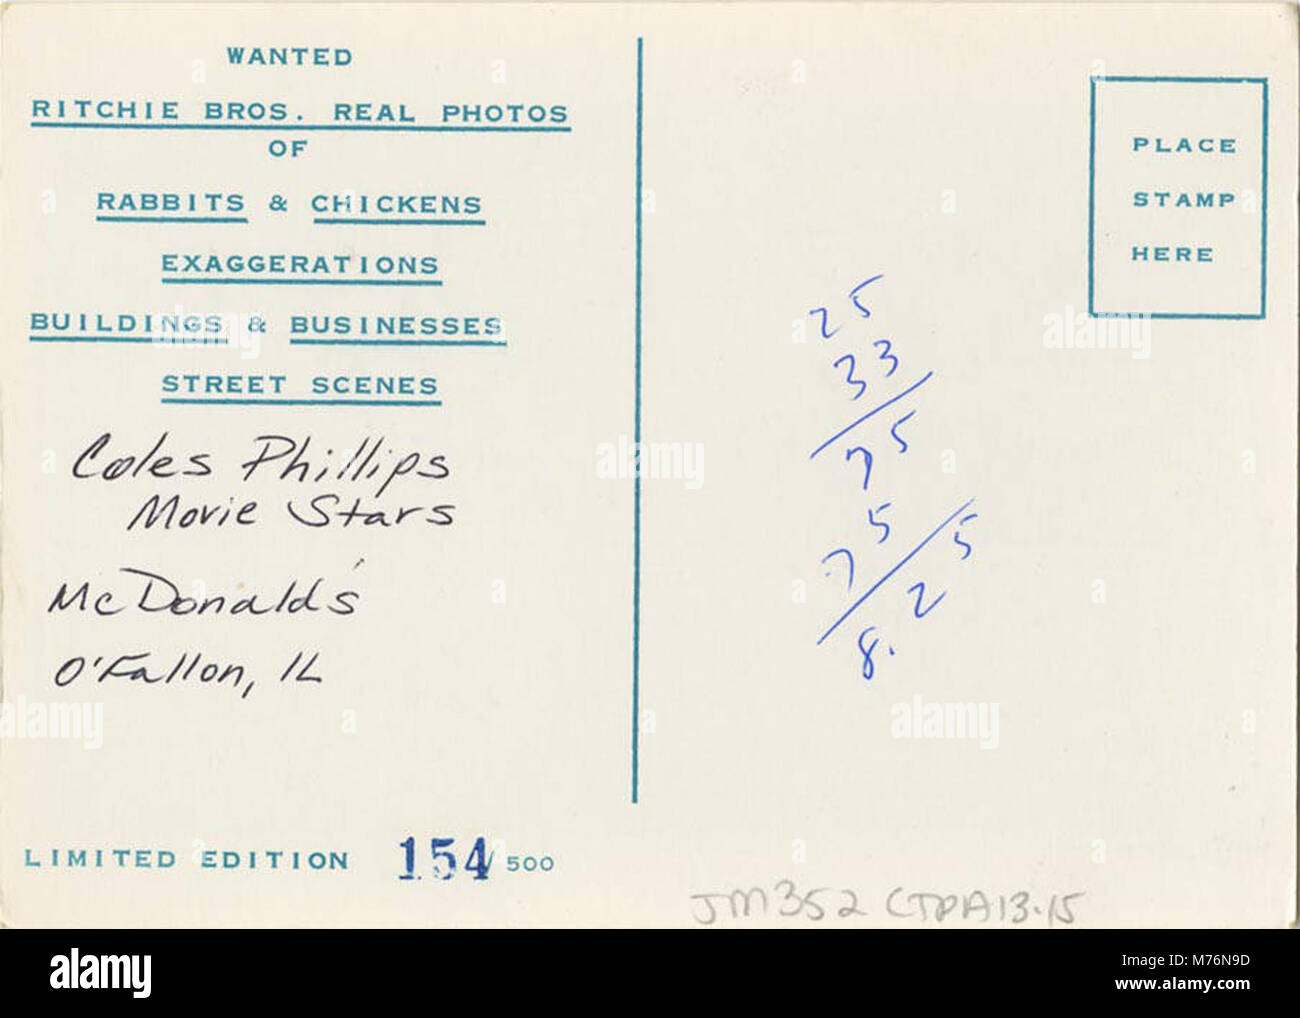 WANTED
RITCHIE BROS. REAL PHOTOS
OF
RABBITS & CHICKENS
EXAGGERATIONS
BUILDINGS & BUSINESSES
STREET SCENES
Coles Phillips
Movie Stars
McDonald's
O'Fallon, IL
LIMITED EDITION 154/500
PLACE
STAMP
HERE
25
33
75
75
8.25
JM352 CTPA13.15
alamy
Image ID: M76N9D
www.alamy.com